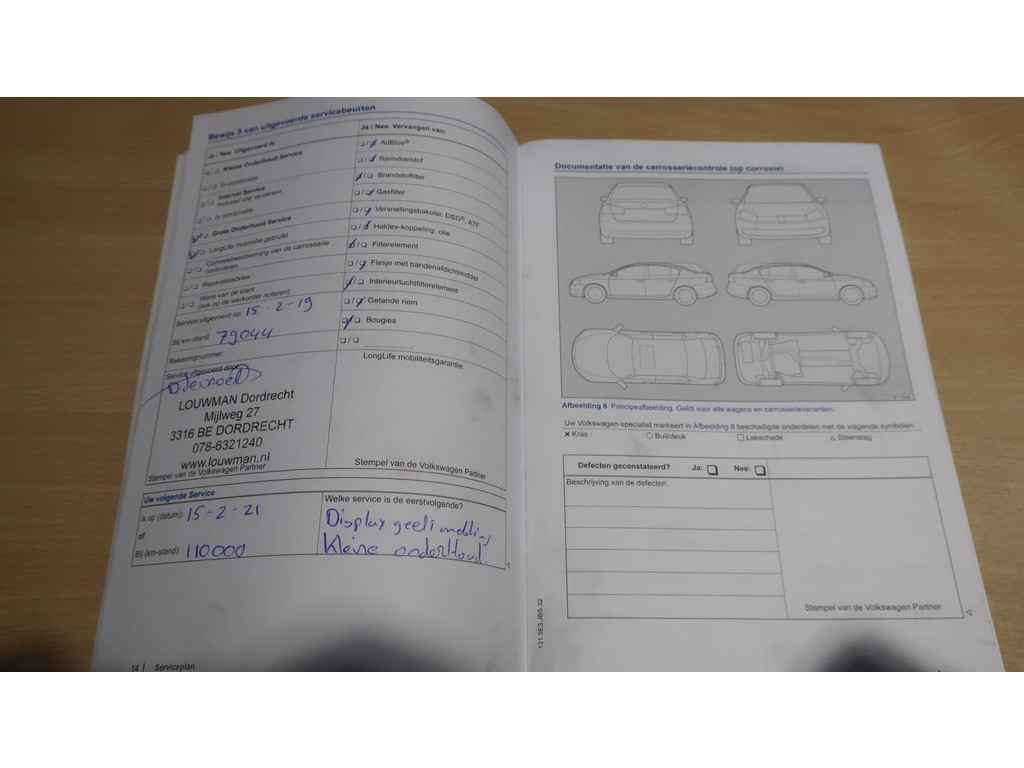 Bewijs 5 van uitgevoerde servicebeurten
Ja / Nee Uitgevoerd is:
Kleine Onderhoud Service
In combinatie
Interval Service
Inclusief olie verversen
In combinatie
Grote Onderhoud Service
LongLife mobiliteit gebruikt
Corrosiebescherming van de carrosserie
controleren
Reparatieadvies
Wens van de klant
(ook op de werkorder noteren)
Service uitgevoerd op: 15-2-19
Bij km-stand: 79044
Rekeningnummer:
Service uitgevoerd door:
LOUWMAN Dordrecht
Mijlweg 27
3316 BE DORDRECHT
078-6321240
www.louwman.nl
Stempel van de Volkswagen Partner
Ja / Nee Vervangen van:
AdBlue®
Remvloeistof
Brandstoffilter
Gasfilter
Versnellingsbakolie: DSG®, ATF
Haldex-koppeling, olie
Filterelement
Flesje met bandenafdichtmiddel
Interieurluchtfilterelement
Getande riem
Bougies
LongLife mobiliteitsgarantie
Stempel van de Volkswagen Partner
Uw volgende Service
Is op (datum): 15-2-21
of
Bij (km-stand): 110000
Welke service is de eerstvolgende?
Display geeft melding
Kleine onderhoud
14 | Serviceplan
Documentatie van de carrosseriecontrole (op corrosie)
Afbeelding 8 Principeafbeelding. Geldt voor alle wagens en carrosserievarianten.
Uw Volkswagen-specialist markeert in Afbeelding 8 beschadigde onderdelen met de volgende symbolen:
× Kras ○ Buil/deuk □ Lakschade △ Steenslag
Defecten geconstateerd? Ja: Nee:
Beschrijving van de defecten.
Stempel van de Volkswagen Partner